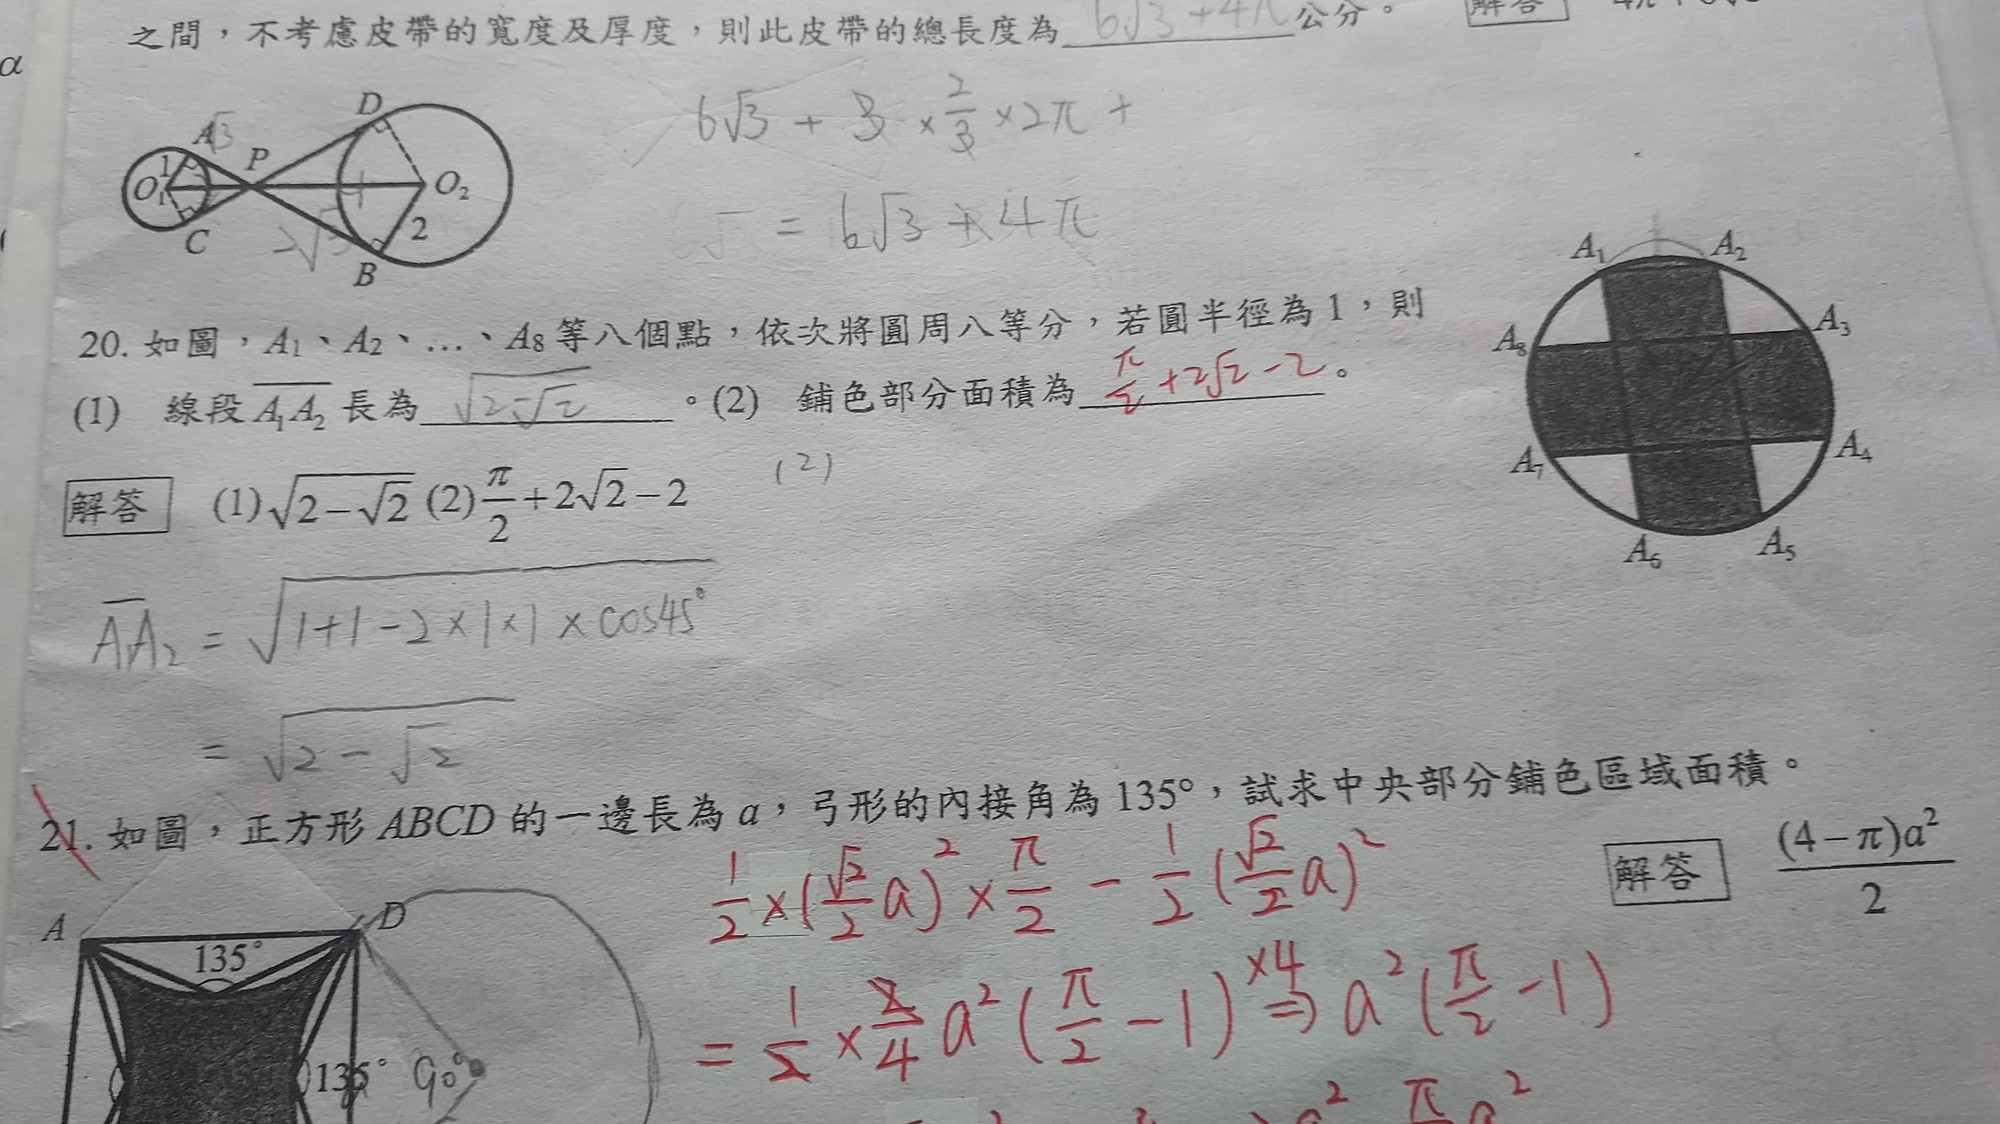 α
之間，不考慮皮帶的寬度及厚度，則此皮帶的總長度為 6√3 + 4π 公分。 解答
A √3 D
1 P
O₁ O₂
2
C 2√3 B
6√3 + 3 × 2/3 × 2π +
= 6√3 + 4π
20. 如圖，A₁、A₂、…、A₈等八個點，依次將圓周八等分，若圓半徑為 1，則
(1) 線段 A₁A₂ 長為 √(2-√2) 。(2) 鋪色部分面積為 π/2 + 2√2 - 2 。
A₁ A₂
A₈ A₃
A₇ A₄
A₆ A₅
解答 (1)√(2-√2) (2) π/2 + 2√2 - 2
(2)
A₁A₂ = √(1+1-2×1×1×cos45°)
= √(2-√2)
21. 如圖，正方形 ABCD 的一邊長為 a，弓形的內接角為 135°，試求中央部分鋪色區域面積。
解答 (4-π)a²/2
1/2 × (√2/2 a)² × π/2 - 1/2 (√2/2 a)²
= 1/2 × 2/4 a² (π/2 - 1) ×4 ⇒ a² (π/2 - 1)
A D
135°
135° 90°